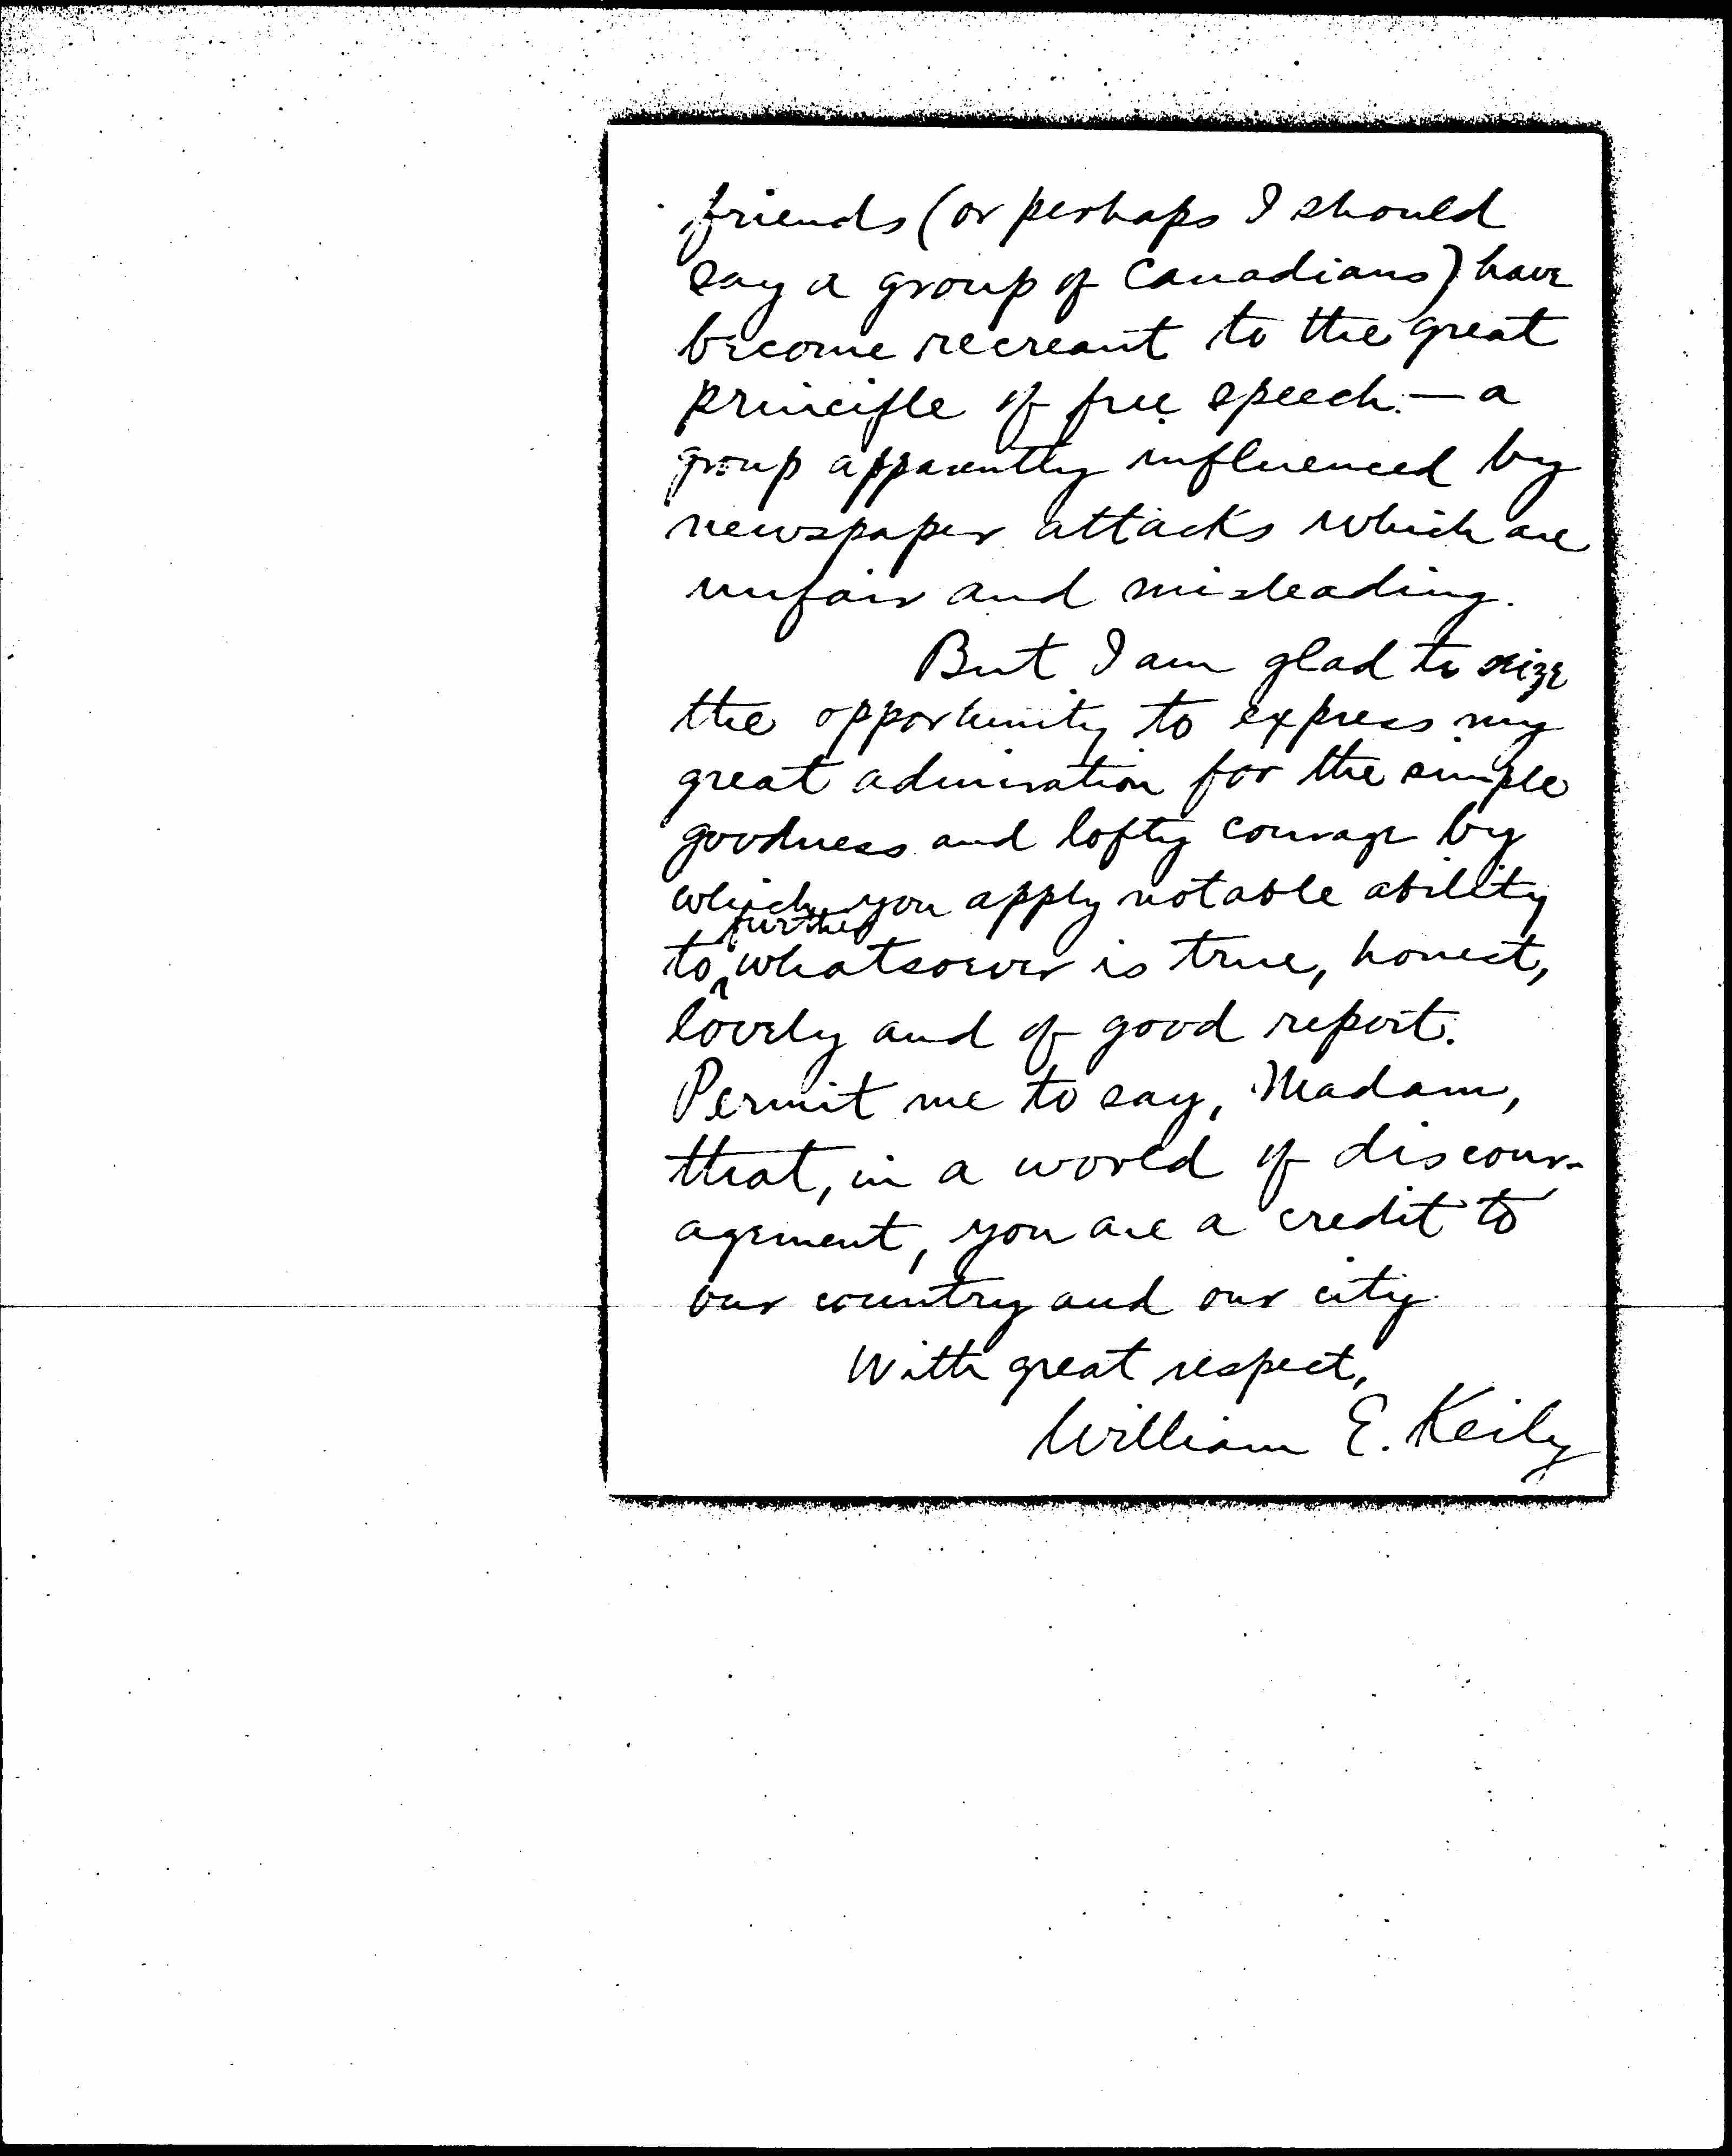 friends (or perhaps I should
say a group of Canadians) have
become recreant to the great
principle of free speech. — a
group apparently influenced by
newspaper attacks which are
unfair and misleading.
But I am glad to seize
the opportunity to express my
great admiration for the simple
goodness and lofty courage by
which you apply notable ability
further
to ‸ whatsoever is true, honest,
lovely and of good report.
Permit me to say, Madam,
that, in a world of discour-
agement, you are a credit to
our country and our city.
With great respect,
William E. Keily